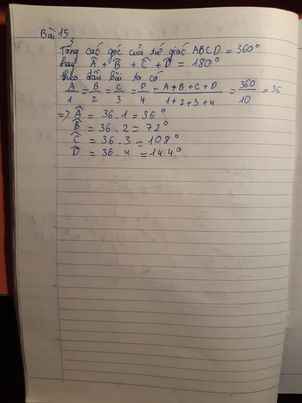 Bài 15
Tổng các góc của tứ giác ABCD = 360°
hay Â + B̂ + Ĉ + D̂ = 180°
theo đầu bài ta có
A/1 = B/2 = C/3 = D/4 = A+B+C+D/1+2+3+4 = 360/10 = 36
=> Â = 36.1 = 36°
B̂ = 36.2 = 72°
Ĉ = 36.3 = 108°
D̂ = 36.4 = 144°